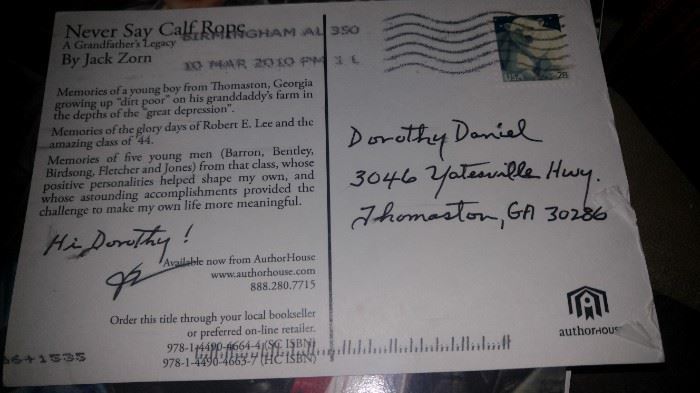 Never Say Calf Rope
A Grandfather's Legacy
By Jack Zorn
BIRMINGHAM AL 350
10 MAR 2010 PM
Memories of a young boy from Thomaston, Georgia
growing up "dirt poor" on his granddaddy's farm in
the depths of the "great depression".
Memories of the glory days of Robert E. Lee and the
amazing class of '44.
Memories of five young men (Barron, Bentley,
Birdsong, Fletcher and Jones) from that class, whose
positive personalities helped shape my own, and
whose astounding accomplishments provided the
challenge to make my own life more meaningful.
Hi Dorothy!
Available now from AuthorHouse
www.authorhouse.com
888.280.7715
Order this title through your local bookseller
or preferred on-line retailer.
978-1-4490-4664-4 (SC ISBN)
978-1-4490-4663-7 (HC ISBN)
USA 28
Dorothy Daniel
3046 Yatesville Hwy.
Thomaston, GA 30286
authorHOUSE